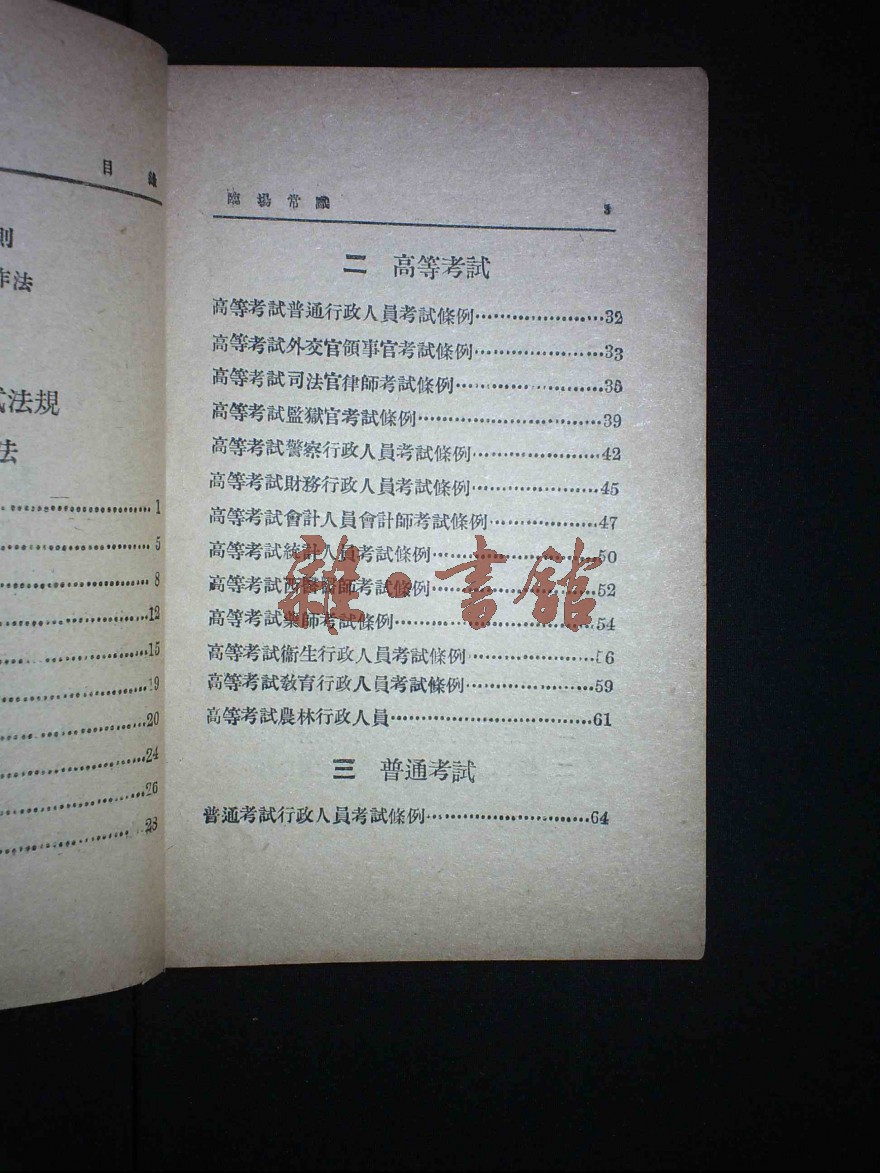 目錄
則
作法
法規
法
1
5
8
12
15
19
20
24
26
28
臨場常識 3
二 高等考試
高等考試普通行政人員考試條例……32
高等考試外交官領事官考試條例……33
高等考試司法官律師考試條例……36
高等考試監獄官考試條例……39
高等考試警察行政人員考試條例……42
高等考試財務行政人員考試條例……45
高等考試會計人員會計師考試條例……47
高等考試統計人員考試條例……50
高等考試西醫醫師考試條例……52
高等考試藥師考試條例……54
高等考試衞生行政人員考試條例……56
高等考試敎育行政人員考試條例……59
高等考試農林行政人員……61
三 普通考試
普通考試行政人員考試條例……64
雜·書館